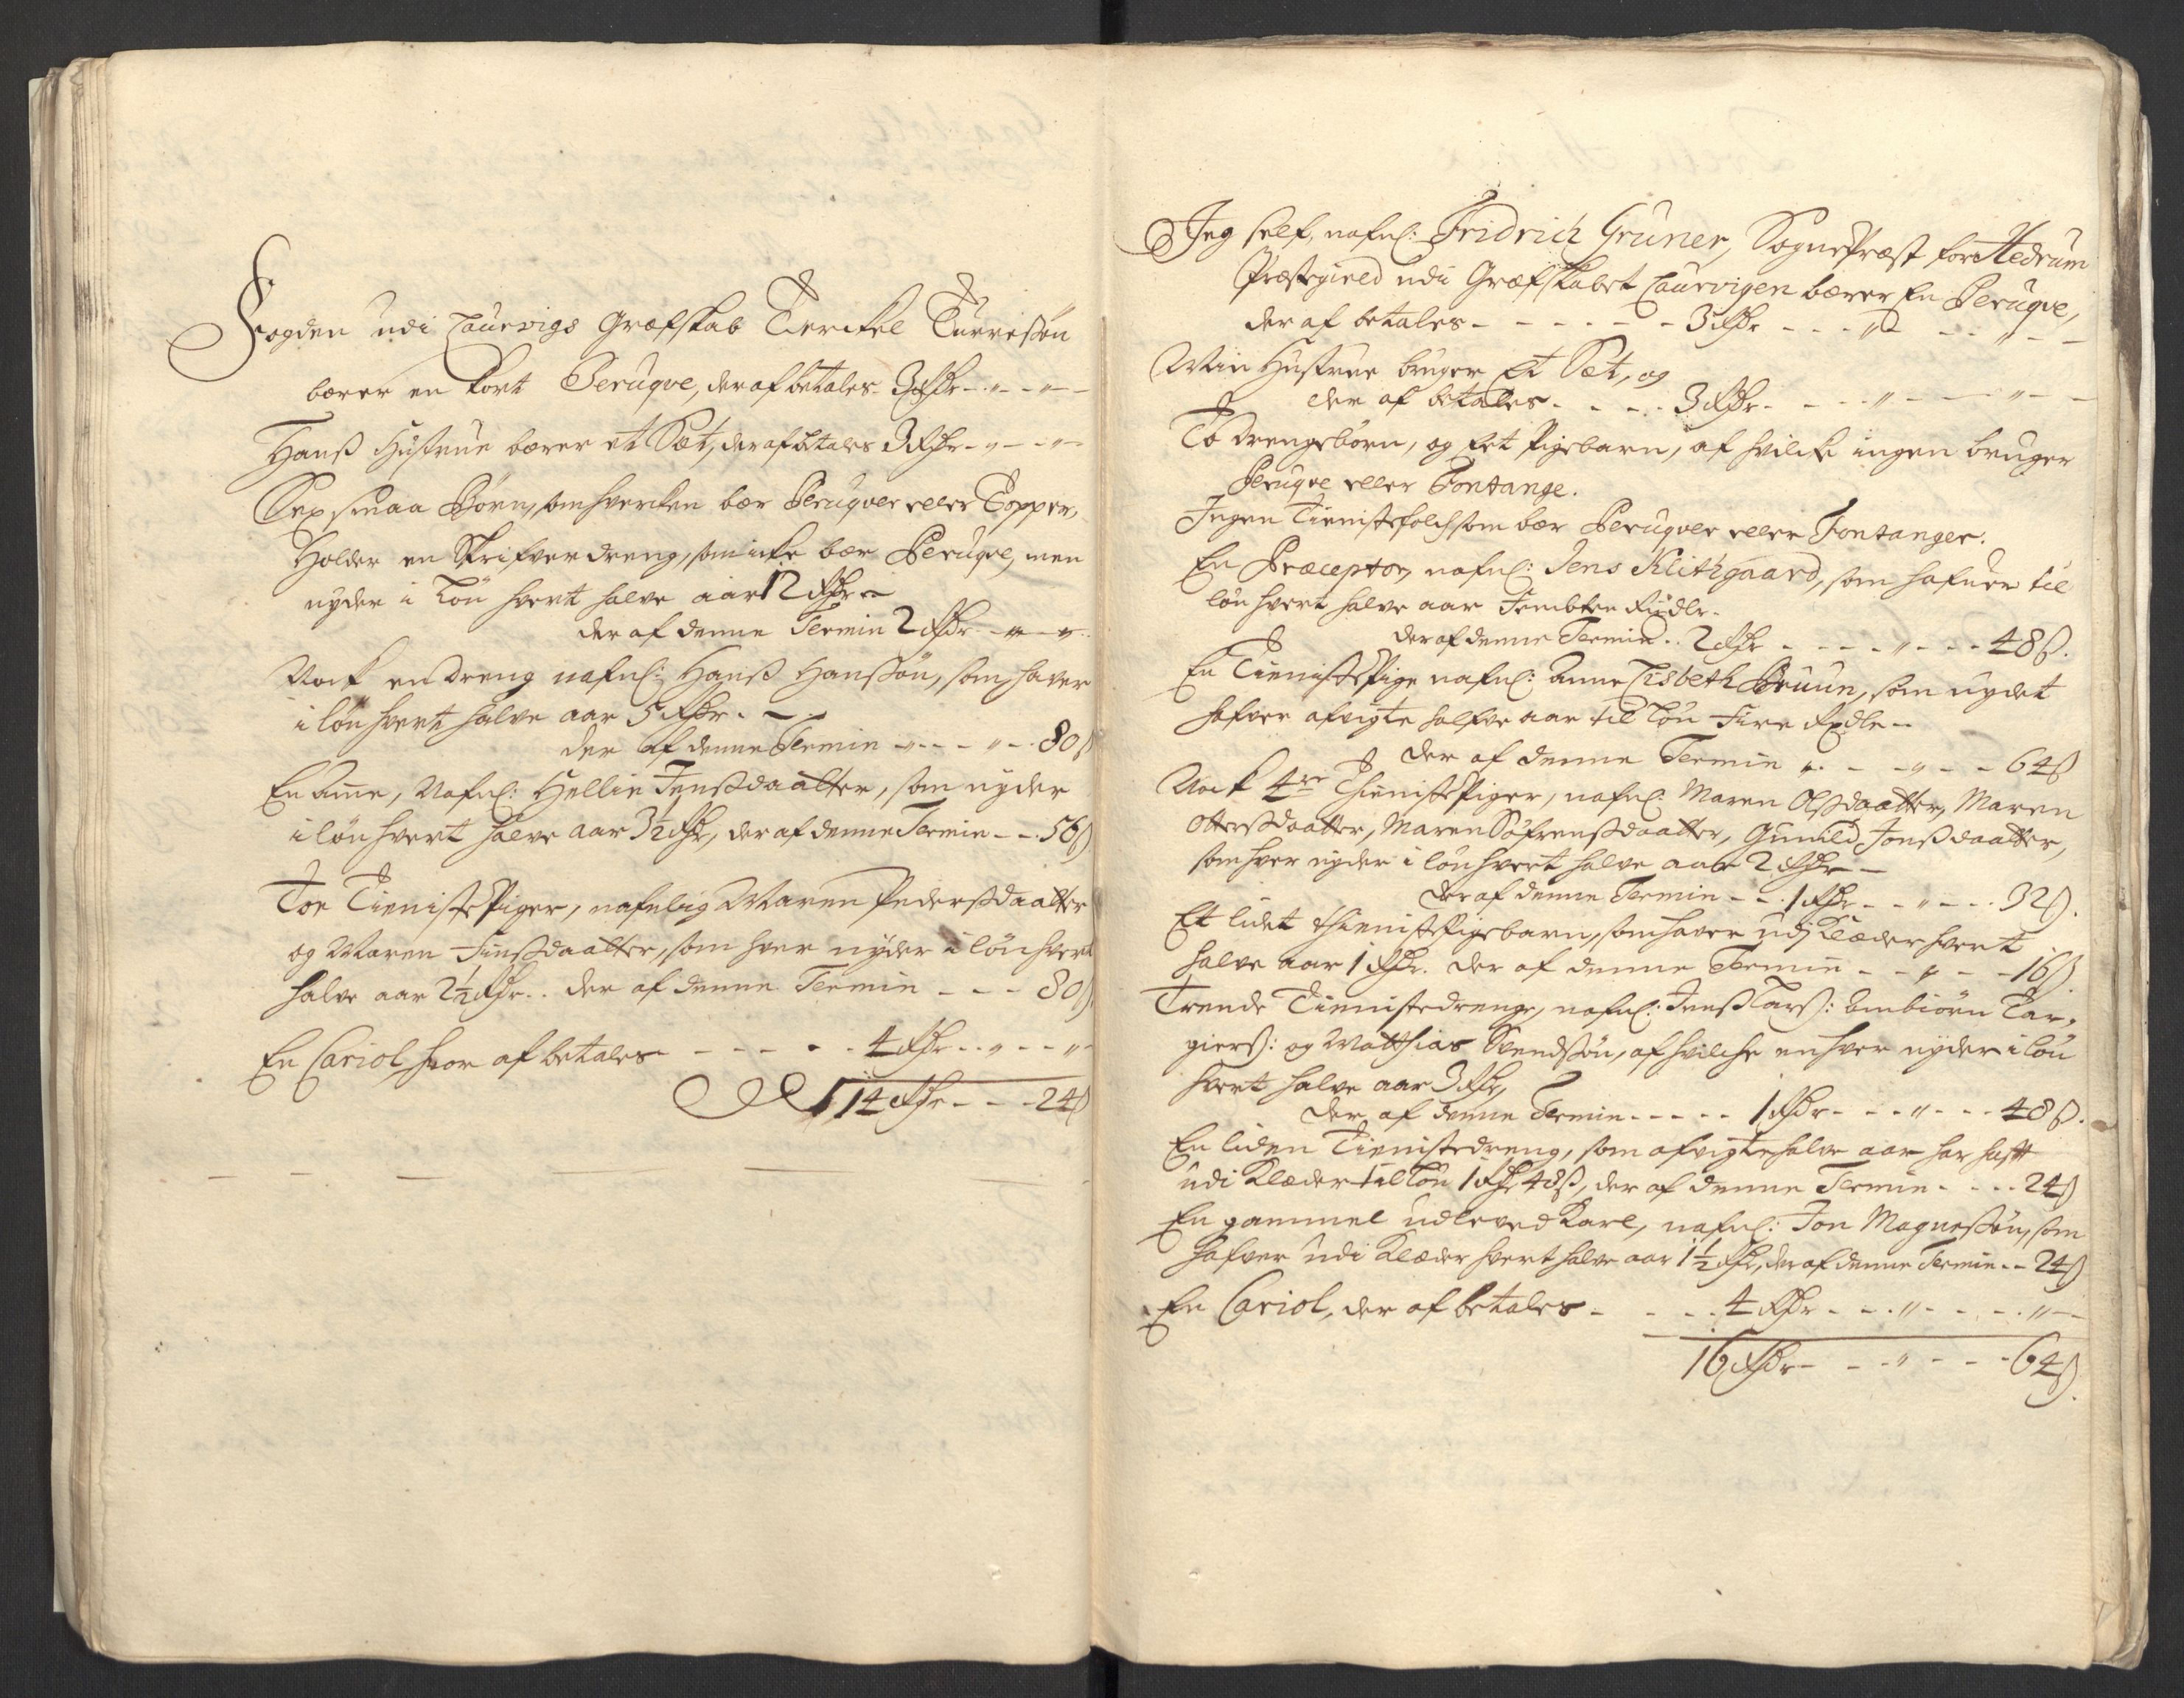 Fogden udi Laurvigs Grefskab Terckel Turresøn
bærer en kort Peruqve, deraf betales 3 Rdr - " - "
Hanß Hustrue bærer et Sæt, der af betales 3 Rdr - " - "
Sex smaa Børn, som hverken bær Peruqver eller Topper,
Holder en Skrifverdreng, som icke bær Peruqve, men
nyder i Løn hvert halve aar 12 Rdr -
der af denne Termin 2 Rdr - " - "
Nock en dreng nafnl: Hanß Hanßøn, som haver
i løn hvert halve aar 5 Rdr. -
der af denne Termin - " - - " - 80 ß
En Amme, Nafnl: Hellie Jenßdaatter, som nyder
i løn hvert halve aar 3½ Rdr, der af denne Termin - - 56 ß
Toe Tieniste Piger, nafnlig Maren Pederßdaatter
og Maren Finßdaatter, som hver nyder i løn hvert
halve aar 2½ Rdr. der af denne Termin - - - 80 ß
En Cariol hvor af betales - - - - - 4 Rdr - " - - "
14 Rdr - - - 24 ß
Jeg self, nafnl: Fridrich Gruner, SognePræst for Hedrum
Præstegield udi Græfskabet Laurvigen bærer En Peruqve,
der af betales - - - - - - 3 Rdr - - - " - - - " - -
Min Hustrue bruger Et Sæt, og
der af betales - - - - 3 Rdr - - - " - - - " - -
To Drengebørn, og Eet Pigebarn, af hvilcke ingen bruger
Peruqve eller Fontange.
Ingen Tienistefolch som bær Peruqver eller Fontanger.
En Præceptor, nafnl: Jens Klithgaard, som hafuer til
løn hvert halve aar Fembten Rixdlr.
der af denne Termin - 2 Rdr - - - - " - - - 48 ß.
En Tieniste Pige nafnl: Anne Lisbeth Bruun, som nydet
hafver afvigte halfve aar til Løn Fire Rixdlr -
der af denne Termin " - - - " - - 64 ß
Nock 4re Thieniste Piger, nafnl: Maren Olßdaatter, Maren
Otterßdaatter, Maren Søfrenßdaatter, Gunild Jonßdaatter,
som hver nyder i løn hvert halve aar 2 Rdr -
der af denne Termin - - 1 Rdr - - " - - - 32 ß.
Et lidet thieniste Pigebarn, som haver udj Klæder hvert
halve aar 1 Rdr. der af denne Termin - - " - - 16 ß
Trende Tienistedrenge, nafnl: Jenß Larß: Ambiørn Tar-
gierß: og Matthias Svendßøn, af hvilche en hver nyder i løn
hvert halve aar 3 Rdr,
der af denne Termin - - - - - 1 Rdr - - - " - - - 48 ß.
En liden Tienistedreng, som afvigte halve aar har hafft
udi Klæder til Løn 1 Rdr 48 ß, der af denne Termin - - - 24 ß
En gammel udleved Karl, nafnl: Jon Magneßøn, som
hafver udi Klæder hvert halve aar 1½ Rdr, der af denne Termin - - 24 ß
En Cariol, der af betales - - - - 4 Rdr - - - " - - - - "
16 Rdr - - - " - - - 64 ß.